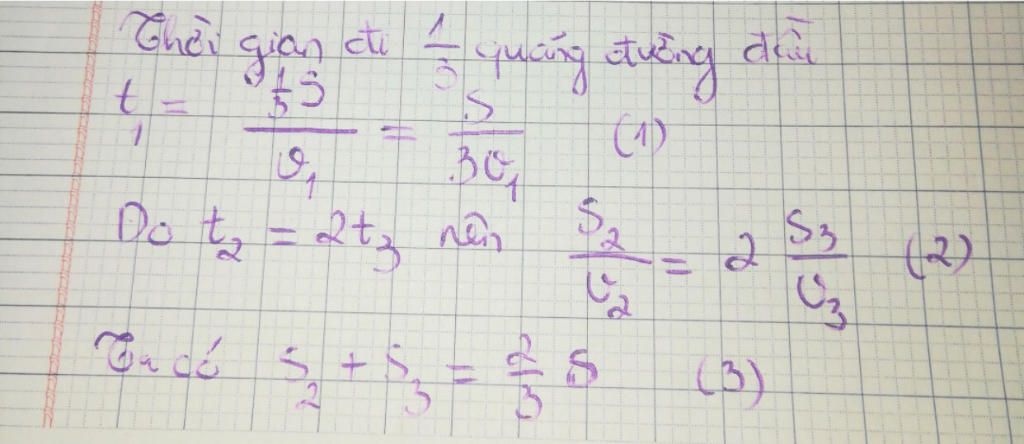 Thời gian đi 1/3 quãng đường đầu
t₁ = (1/3 S)/v₁ = S/(3v₁) (1)
Do t₂ = 2t₃ nên S₂/v₂ = 2 S₃/v₃ (2)
Ta có S₂ + S₃ = 2/3 S (3)